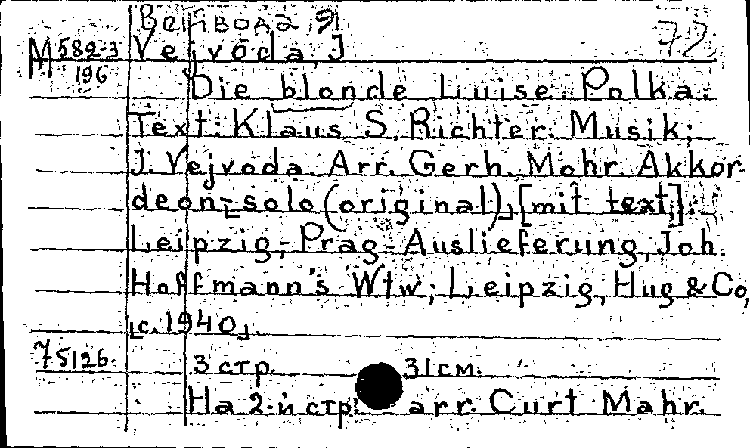 Вейвода, Я
72
М 582-3
196
Vejvoda, J
Die blonde Luise. Polka.
Text: Klaus S. Richter. Musik:
J. Vejvoda. Arr. Gerh. Mohr. Akkor-
deon-solo (original), [mit text].
Leipzig, Prag-Auslieferung, Joh.
Hoffmann's Wtw; Leipzig, Hug & Co,
[c. 1940].
75126
3 стр. 31 см.
На 2-й стр. arr. Curt Mahr.